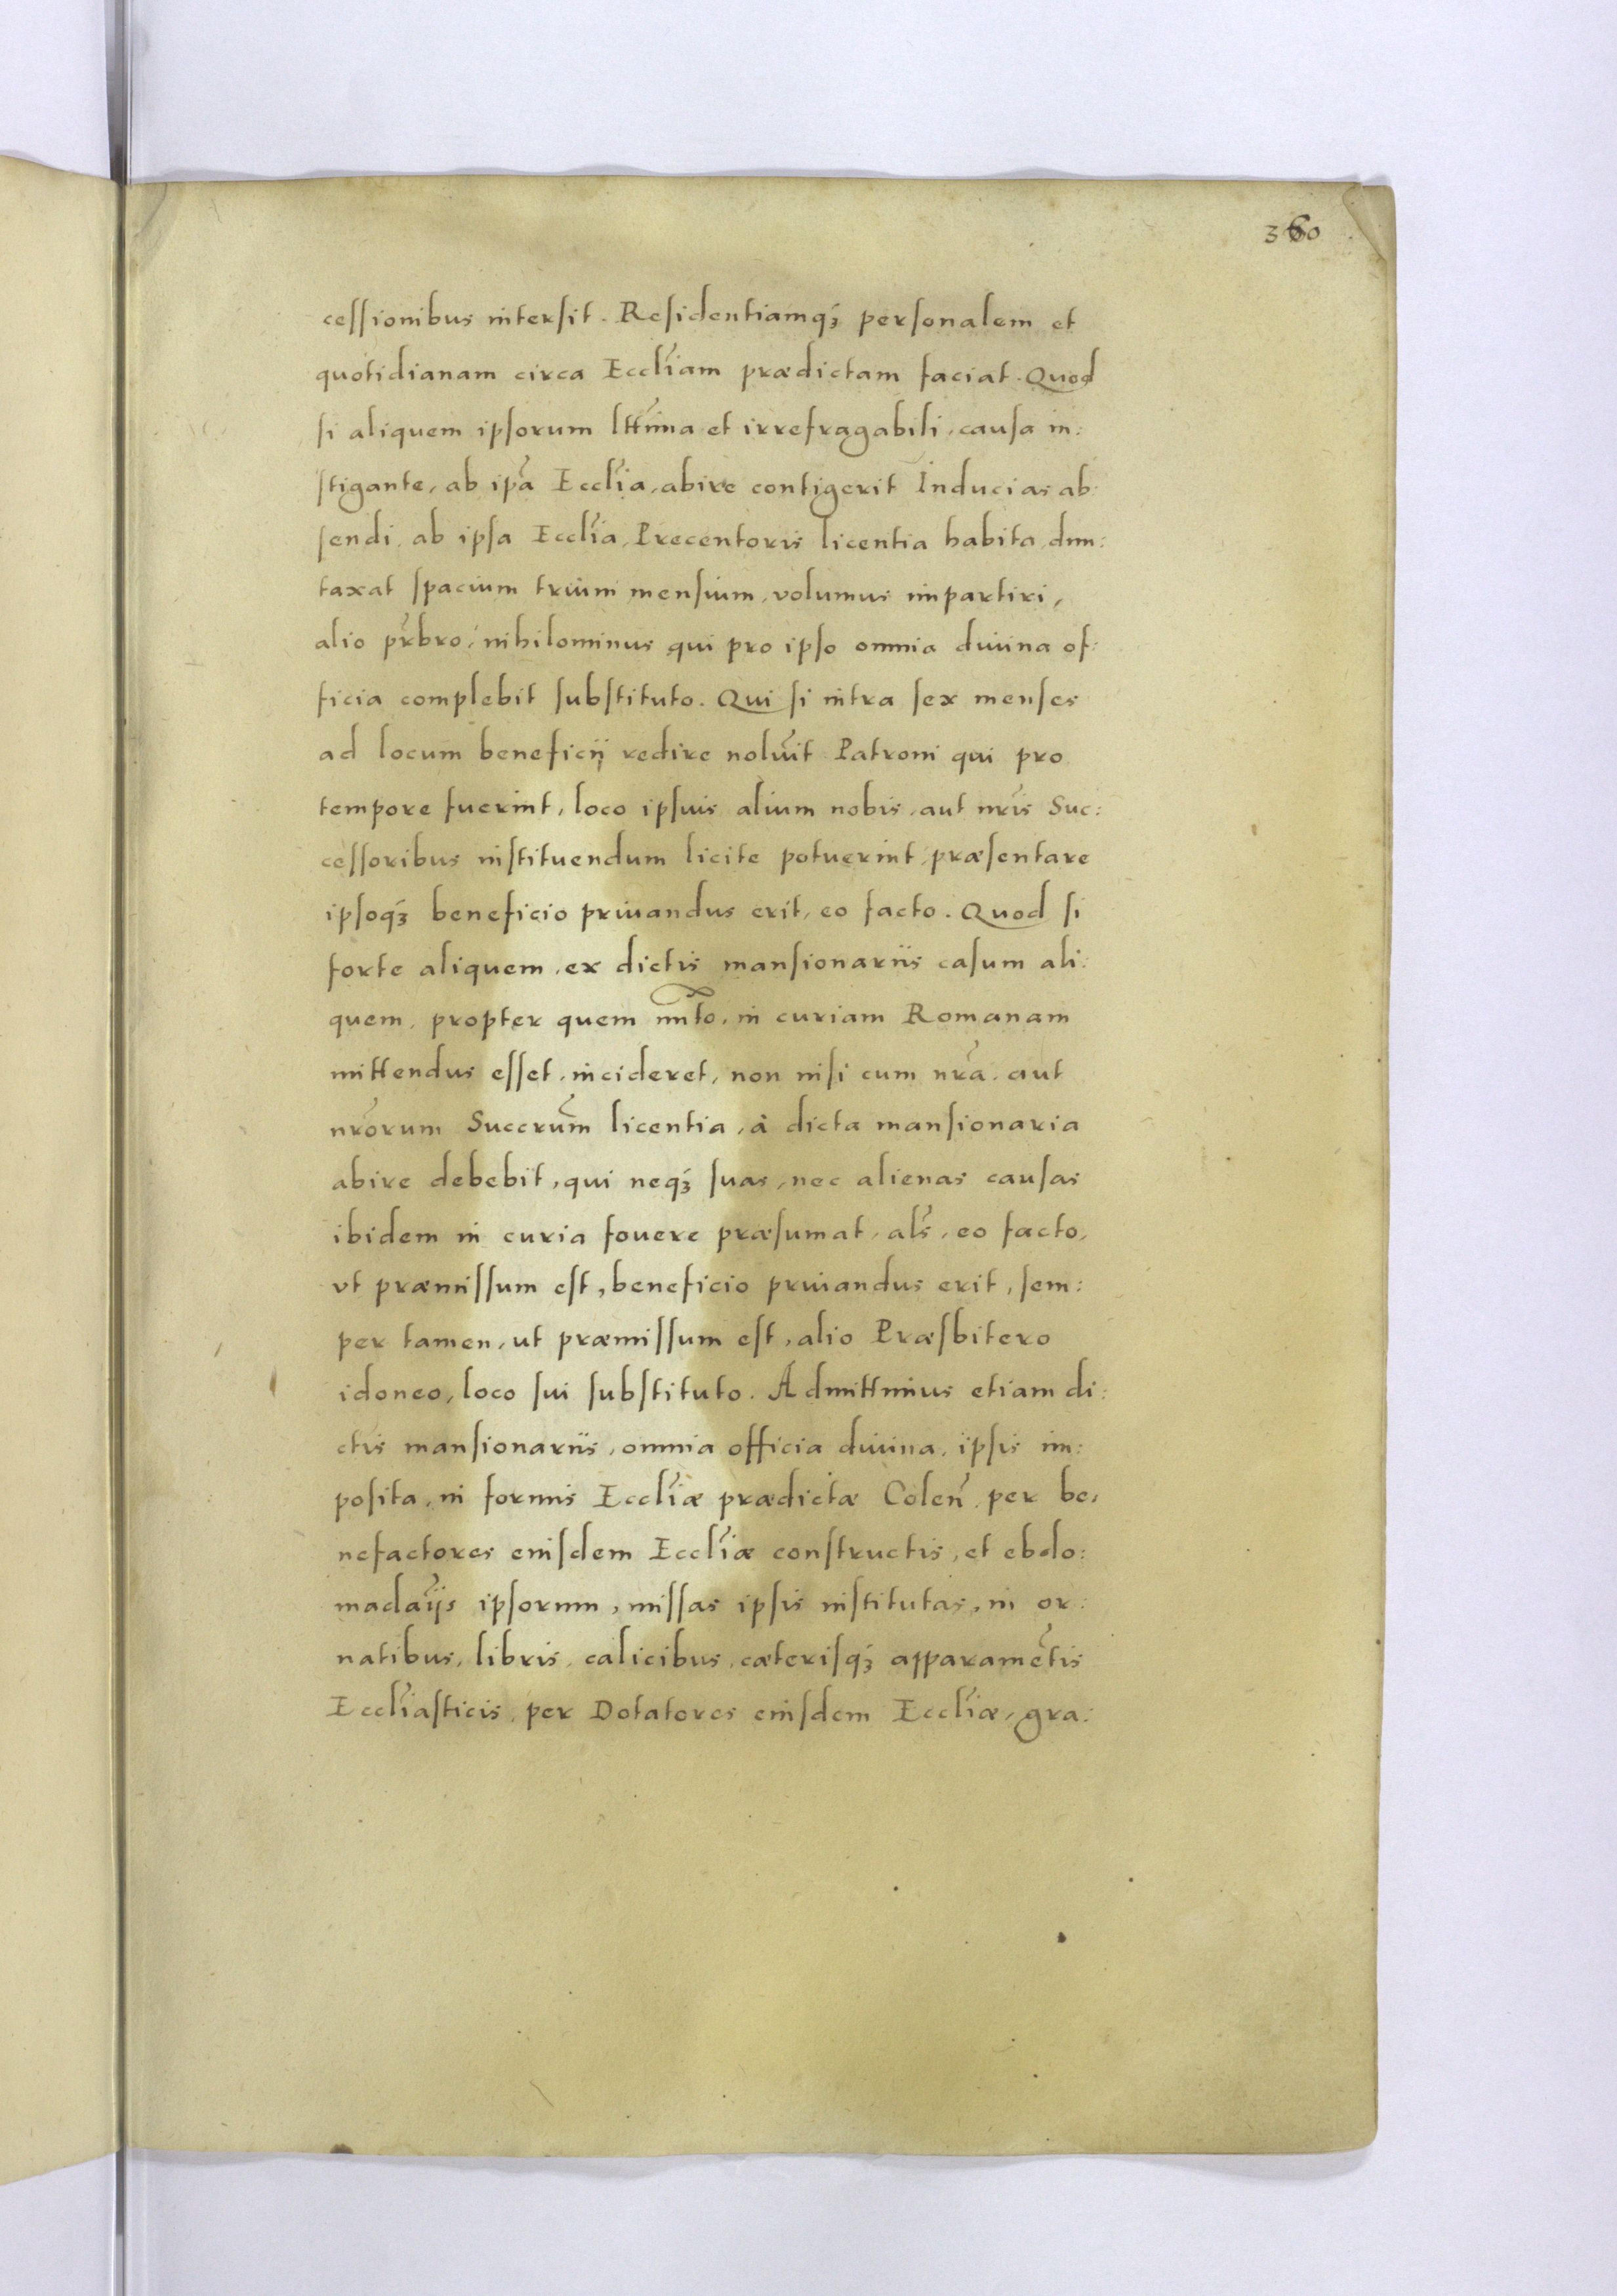 360
cessionibus intersit. Residentiamq₃ personalem et
quotidianam circa Eccl̃iam prædictam faciat. Quod
si aliquem ipsorum lttĩma et irrefragabili, causa in:
stigante, ab ip̃a Eccl̃ia, abire contigerit Inducias ab:
sendi, ab ipsa Eccl̃ia, Precentoris licentia habita, dun:
taxat spacium trium mensium, volumus impartiri,
alio pr̃bro, nihilominus qui pro ipso omnia diuina of:
ficia complebit substituto. Qui si intra sex menses
ad locum beneficij redire nolũit Patroni qui pro
tempore fuerint, loco ipsius alium nobis, aut nr̃is Suc:
cessoribus instituendum licite potuerint, præsentare
ipsoq₃ beneficio priuandus erit, eo facto. Quod si
forte aliquem, ex dictis mansionariis casum ali:
quem, propter quem in curiam Romanam
mittendus esset, incideret, non nisi cum nr̃a, aut
nr̃orum Succrũm licentia, à dicta mansionaria
abire debebit, qui neq₃ suas, nec alienas causas
ibidem in curia fouere præsumat, als̃, eo facto,
vt præmissum est, beneficio priuandus erit, sem:
per tamen, ut præmissum est, alio Præsbitero
idoneo, loco sui substituto. Admittimus etiam di:
ctis mansionariis, omnia officia diuina, ipsis im:
posita, in formis Eccl̃iæ prædictæ Coleñ, per be,
nefactores eiusdem Eccl̃iæ constructis, et ebdo:
madar̃ijs ipsorum, missas ipsis institutas, in or:
natibus, libris, calicibus, cæterisq₃ apparamẽtis
Eccl̃iasticis, per Dotatores eiusdem Eccl̃iæ, gra: